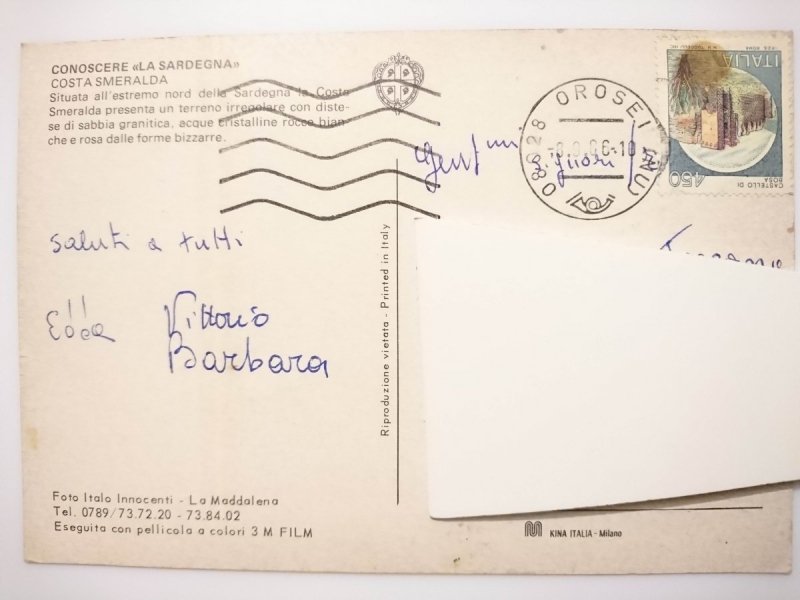 CONOSCERE «LA SARDEGNA»
COSTA SMERALDA
Situata all'estremo nord della Sardegna la Costa
Smeralda presenta un terreno irregolare con diste-
se di sabbia granitica, acque cristalline rocce bian-
che e rosa dalle forme bizzarre.
ITALIA
450
CASTELLO DI
ROSA
08028 OROSEI (NU)
saluti a tutti
Edda Vittorio
Barbara
Riproduzione vietata - Printed in Italy
Foto Italo Innocenti - La Maddalena
Tel. 0789/73.72.20 - 73.84.02
Eseguita con pellicola a colori 3 M FILM
KINA ITALIA - Milano